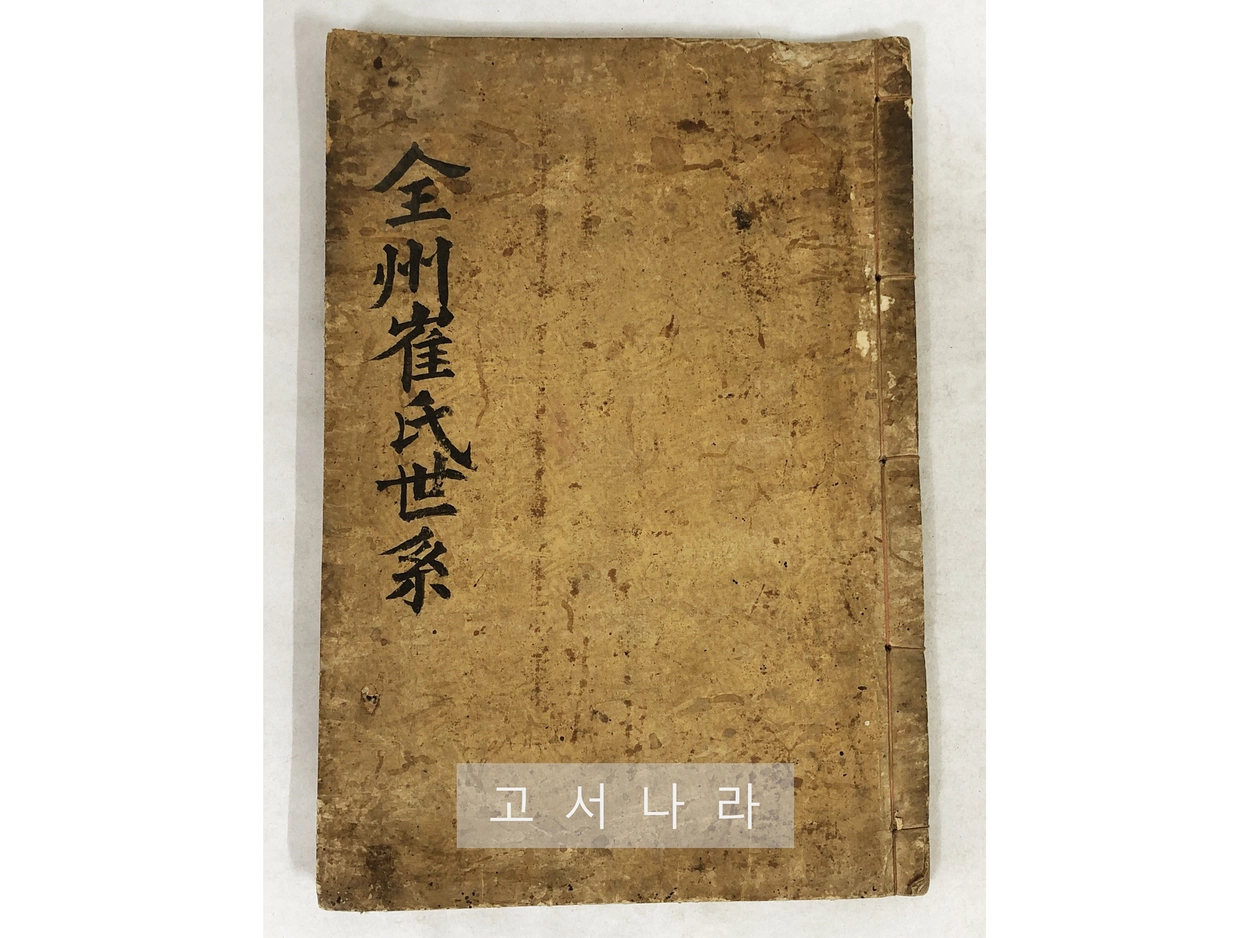 全州崔氏世系
고서나라